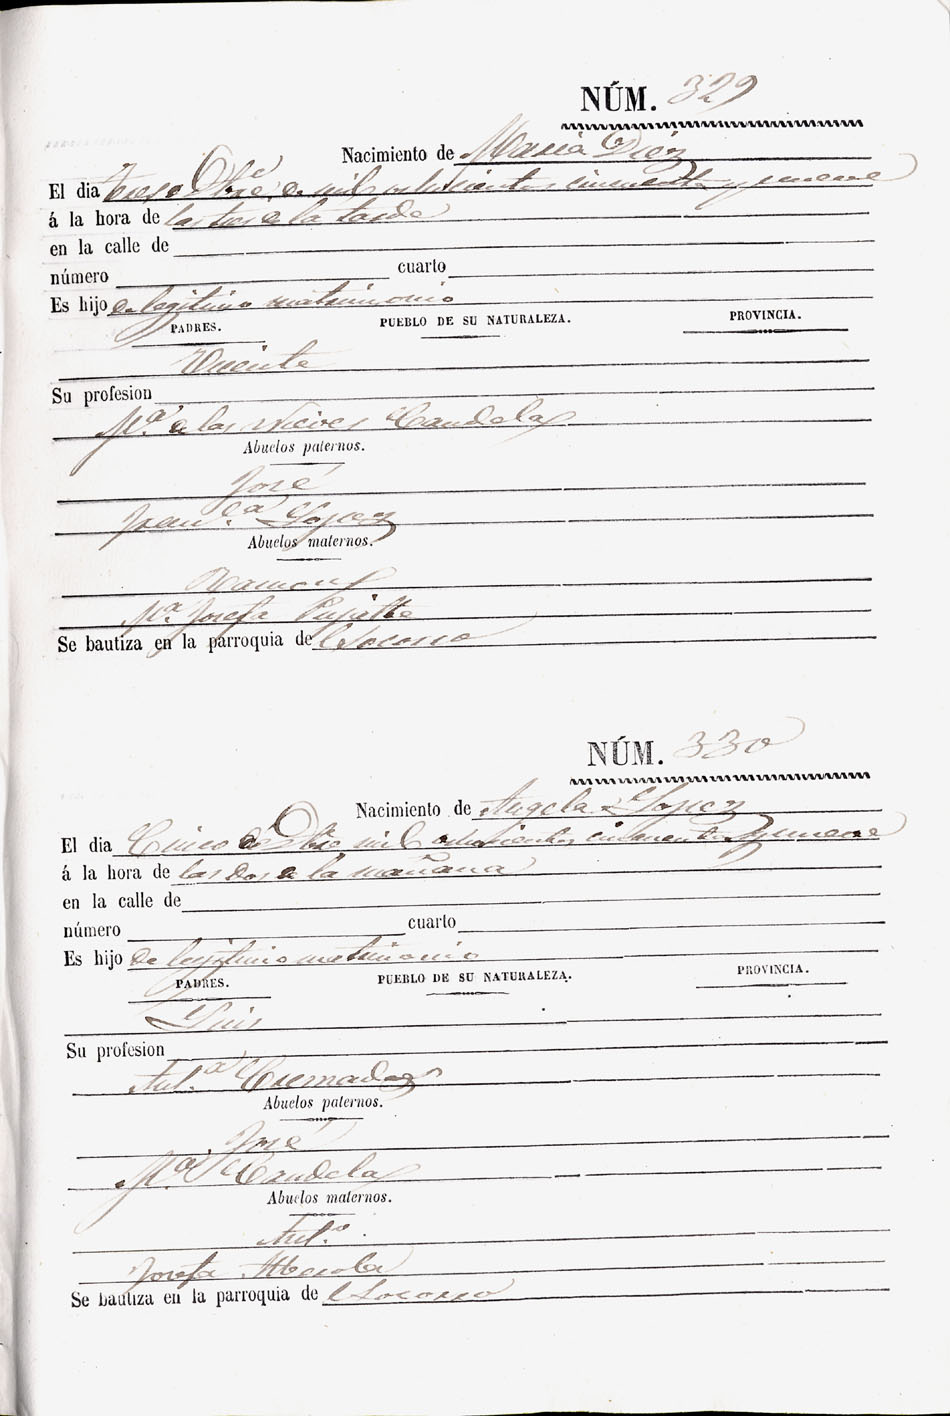 NÚM. 329
Nacimiento de Maria Diez
El dia Trese Obre. de mil ochocientos cincuenta y nueve
á la hora de las tres de la tarde
en la calle de
número cuarto
Es hijo de legitimo matrimonio
PADRES. PUEBLO DE SU NATURALEZA. PROVINCIA.
Vicente
Su profesion
Mª. de las Nieves Candela
Abuelos paternos.
José
Franca. Lopez
Abuelos maternos.
Ramon
Mª. Josefa
Se bautiza en la parroquia de Socorro
NÚM. 330
Nacimiento de Angela Lopez
El dia Cinco de Obre mil ochocientos cincuenta y nueve
á la hora de las dos de la mañana
en la calle de
número cuarto
Es hijo de legitimo matrimonio
PADRES. PUEBLO DE SU NATURALEZA. PROVINCIA.
Luis
Su profesion
Antª. Cremades
Abuelos paternos.
José
Mª. Candela
Abuelos maternos.
Antº.
Josefa
Se bautiza en la parroquia de Socorro